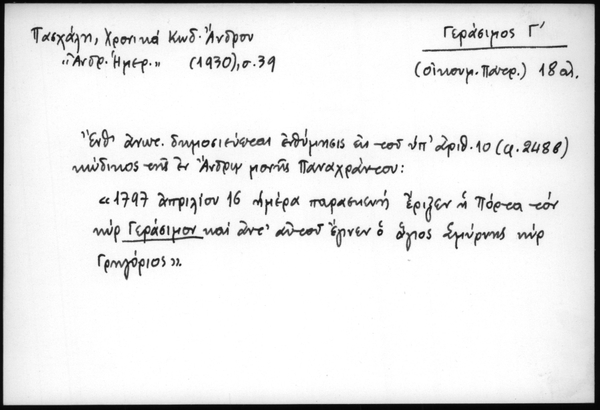 Πασχάλη, Χρονικά Κωδ. Ἄνδρου
"Ἀνδρ. Ἡμερ." (1930), σ. 39
Γεράσιμος Γ'
(οἰκουμ. Πατρ.) 18 αἰ.
Ἔνθ' ἀνωτ. δημοσιεύεται ἐνθύμησις ἐκ τοῦ ὑπ' ἀριθ. 10 (φ. 248β)
κώδικος τῆς ἐν Ἄνδρῳ μονῆς Παναχράντου:
«1797 ἀπριλίου 16 ἡμέρα παρασκευή ἔριξεν ἡ Πόρτα τόν
κύρ Γεράσιμον καί ἀντ' αὐτοῦ ἔγινεν ὁ ἅγιος Σμύρνης κύρ
Γρηγόριος».